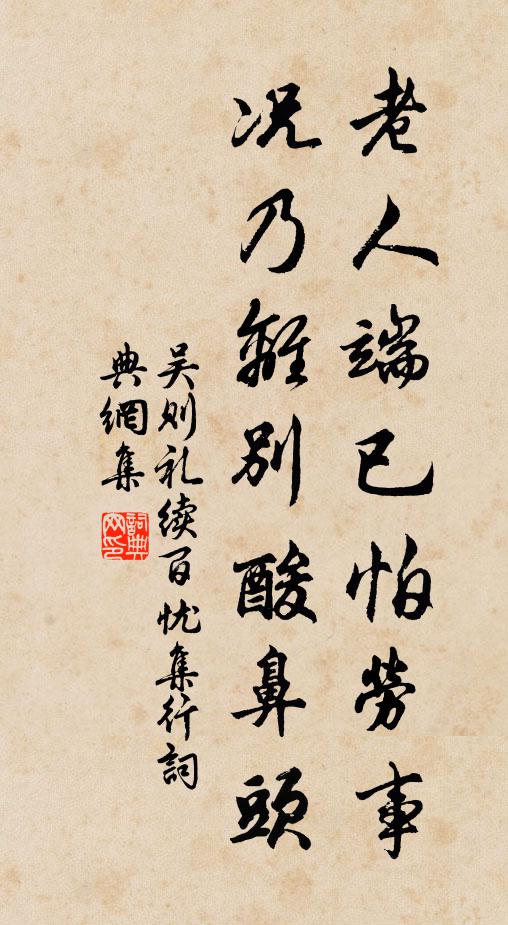 老人端已怕勞事
况乃離别酸鼻頭
吴则礼续百忧集行詞
典網集
詞典
网印